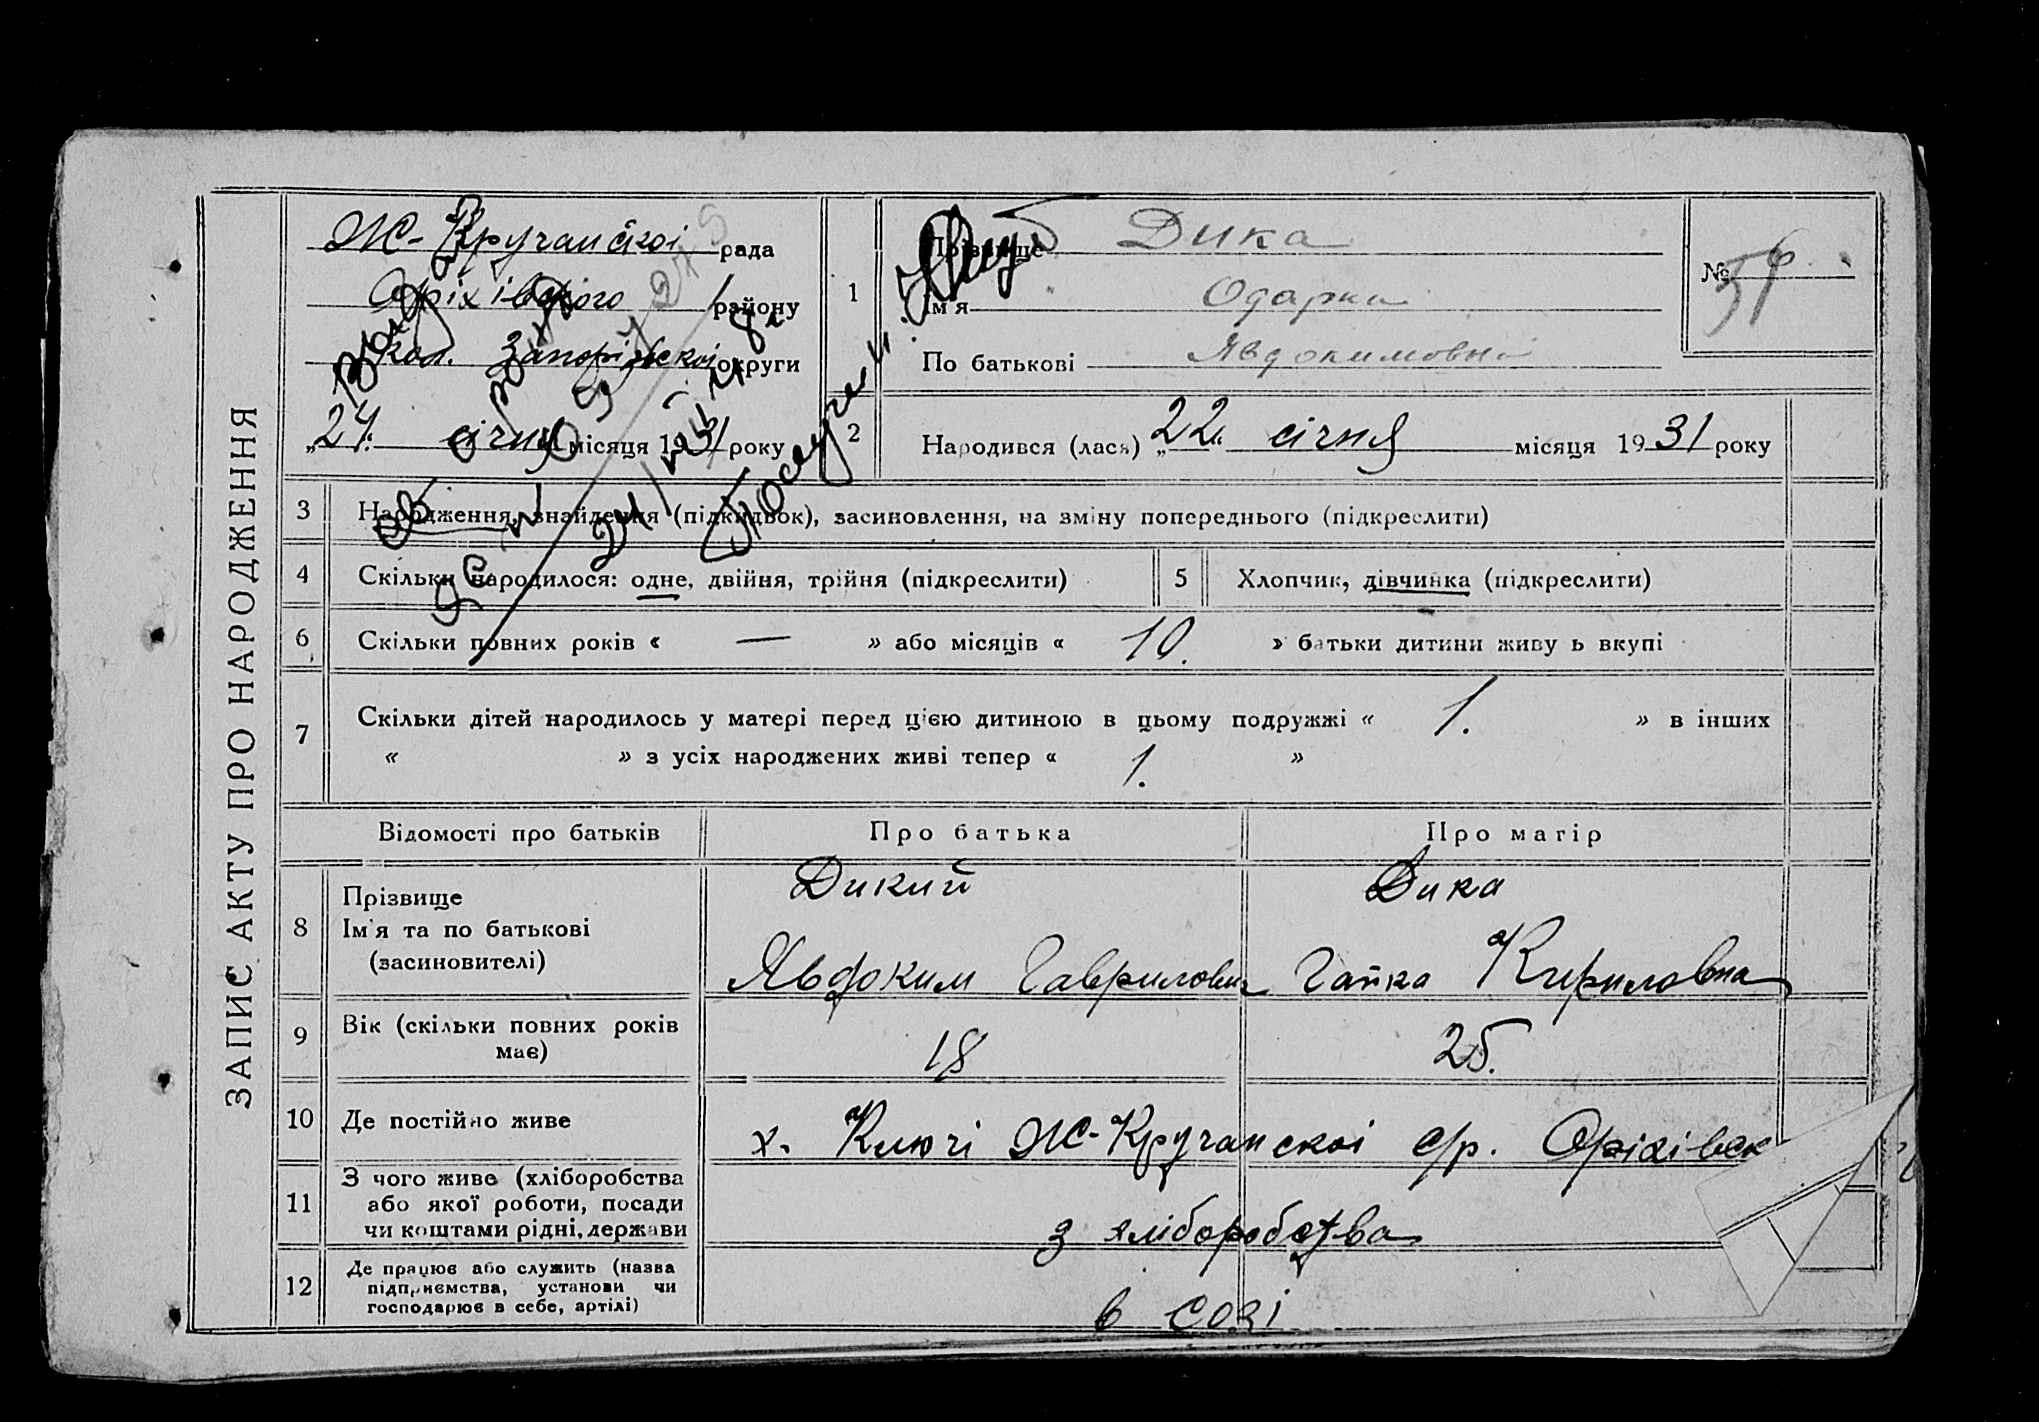 ЗАПИС АКТУ ПРО НАРОДЖЕННЯ
Ж-Кручанскої рада
Оріхівського району
Кол. Запорізської округи
„24. січня місяця 1931 року
1
Прізвище Дика
Ім'я Одарка
По батькові Явдокимовна
№ 56
2
Народився (лася) „22. січня місяця 1931 року
3 Народження, знайдення (підкидьок), засиновлення, на зміну попереднього (підкреслити)
4 Скільки народилося: одне, двійня, трійня (підкреслити)
5 Хлопчик, дівчинка (підкреслити)
6 Скільки повних років « — » або місяців « 10. » батьки дитини живу ь вкупі
7 Скільки дітей народилось у матері перед цією дитиною в цьому подружжі « 1. » в інших
« » з усіх народжених живі тепер « 1. »
Відомості про батьків Про батька Про матір
8 Прізвище
Ім'я та по батькові
(засиновителі)
Дикий
Явдоким Гаврилович
Дика
Гапка Кириловна
9 Вік (скільки повних років
має)
18 25.
10 Де постійно живе х. Ключі Ж-Кручанскої с/р. Оріхівськ
11 З чого живе (хліборобства
або якої роботи, посади
чи коштами рідні, держави
з хліборобства
12 Де працює або служить (назва
підприємства, установи чи
господарює в себе, артілі)
в созі